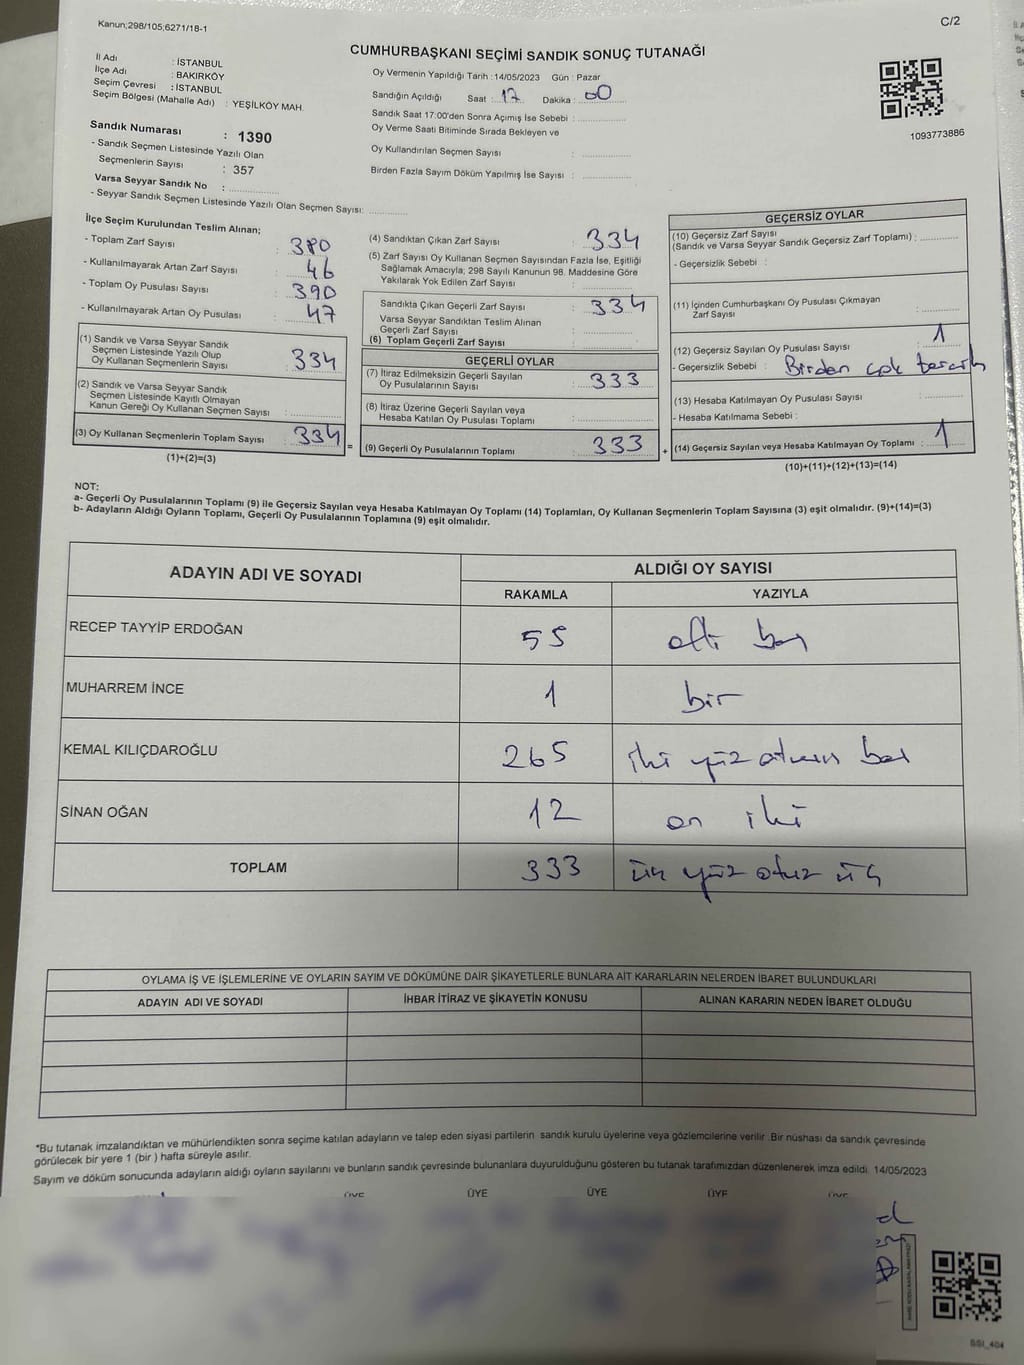 Kanun;298/105;6271/18-1
C/2
CUMHURBAŞKANI SEÇİMİ SANDIK SONUÇ TUTANAĞI
İl Adı : İSTANBUL
İlçe Adı : BAKIRKÖY
Seçim Çevresi : İSTANBUL
Seçim Bölgesi (Mahalle Adı) : YEŞİLKÖY MAH.
Sandık Numarası : 1390
- Sandık Seçmen Listesinde Yazılı Olan
Seçmenlerin Sayısı : 357
Varsa Seyyar Sandık No :
- Seyyar Sandık Seçmen Listesinde Yazılı Olan Seçmen Sayısı:
Oy Vermenin Yapıldığı Tarih : 14/05/2023 Gün : Pazar
Sandığın Açıldığı Saat : 17 Dakika : 00
Sandık Saat 17:00'den Sonra Açımış İse Sebebi :
Oy Verme Saati Bitiminde Sırada Bekleyen ve
Oy Kullandırılan Seçmen Sayısı :
Birden Fazla Sayım Döküm Yapılmış İse Sayısı :
1093773886
İlçe Seçim Kurulundan Teslim Alınan;
- Toplam Zarf Sayısı : 380
- Kullanılmayarak Artan Zarf Sayısı : 46
- Toplam Oy Pusulası Sayısı : 390
- Kullanılmayarak Artan Oy Pusulası : 47
(1) Sandık ve Varsa Seyyar Sandık
Seçmen Listesinde Yazılı Olup
Oy Kullanan Seçmenlerin Sayısı : 334
(2) Sandık ve Varsa Seyyar Sandık
Seçmen Listesinde Kayıtlı Olmayan
Kanun Gereği Oy Kullanan Seçmen Sayısı :
(3) Oy Kullanan Seçmenlerin Toplam Sayısı : 334
(1)+(2)=(3)
=
(4) Sandıktan Çıkan Zarf Sayısı : 334
(5) Zarf Sayısı Oy Kullanan Seçmen Sayısından Fazla İse, Eşitliği
Sağlamak Amacıyla; 298 Sayılı Kanunun 98. Maddesine Göre
Yakılarak Yok Edilen Zarf Sayısı :
Sandıkta Çıkan Geçerli Zarf Sayısı : 334
Varsa Seyyar Sandıktan Teslim Alınan
Geçerli Zarf Sayısı :
(6) Toplam Geçerli Zarf Sayısı :
GEÇERLİ OYLAR
(7) İtiraz Edilmeksizin Geçerli Sayılan
Oy Pusulalarının Sayısı : 333
(8) İtiraz Üzerine Geçerli Sayılan veya
Hesaba Katılan Oy Pusulası Toplamı :
(9) Geçerli Oy Pusulalarının Toplamı : 333
+
GEÇERSİZ OYLAR
(10) Geçersiz Zarf Sayısı
(Sandık ve Varsa Seyyar Sandık Geçersiz Zarf Toplamı) :
- Geçersizlik Sebebi :
(11) İçinden Cumhurbaşkanı Oy Pusulası Çıkmayan
Zarf Sayısı :
(12) Geçersiz Sayılan Oy Pusulası Sayısı : 1
- Geçersizlik Sebebi : Birden çok tercih
(13) Hesaba Katılmayan Oy Pusulası Sayısı :
- Hesaba Katılmama Sebebi :
(14) Geçersiz Sayılan veya Hesaba Katılmayan Oy Toplamı : 1
(10)+(11)+(12)+(13)=(14)
NOT:
a- Geçerli Oy Pusulalarının Toplamı (9) ile Geçersiz Sayılan veya Hesaba Katılmayan Oy Toplamı (14) Toplamları, Oy Kullanan Seçmenlerin Toplam Sayısına (3) eşit olmalıdır. (9)+(14)=(3)
b- Adayların Aldığı Oyların Toplamı, Geçerli Oy Pusulalarının Toplamına (9) eşit olmalıdır.
ADAYIN ADI VE SOYADI
ALDIĞI OY SAYISI
RAKAMLA YAZIYLA
RECEP TAYYİP ERDOĞAN 55
MUHARREM İNCE 1 bir
KEMAL KILIÇDAROĞLU 265 iki yüz atmış beş
SİNAN OĞAN 12 on iki
TOPLAM 333 üç yüz otuz üç
OYLAMA İŞ VE İŞLEMLERİNE VE OYLARIN SAYIM VE DÖKÜMÜNE DAİR ŞİKAYETLERLE BUNLARA AİT KARARLARIN NELERDEN İBARET BULUNDUKLARI
ADAYIN ADI VE SOYADI İHBAR İTİRAZ VE ŞİKAYETİN KONUSU ALINAN KARARIN NEDEN İBARET OLDUĞU
*Bu tutanak imzalandıktan ve mühürlendikten sonra seçime katılan adayların ve talep eden siyasi partilerin sandık kurulu üyelerine veya gözlemcilerine verilir .Bir nüshası da sandık çevresinde
görülecek bir yere 1 (bir ) hafta süreyle asılır.
Sayım ve döküm sonucunda adayların aldığı oyların sayılarını ve bunların sandık çevresinde bulunanlara duyurulduğunu gösteren bu tutanak tarafımızdan düzenlenerek imza edildi. 14/05/2023
ÜYE ÜYE ÜYE ÜYE ÜYE
SSI_404